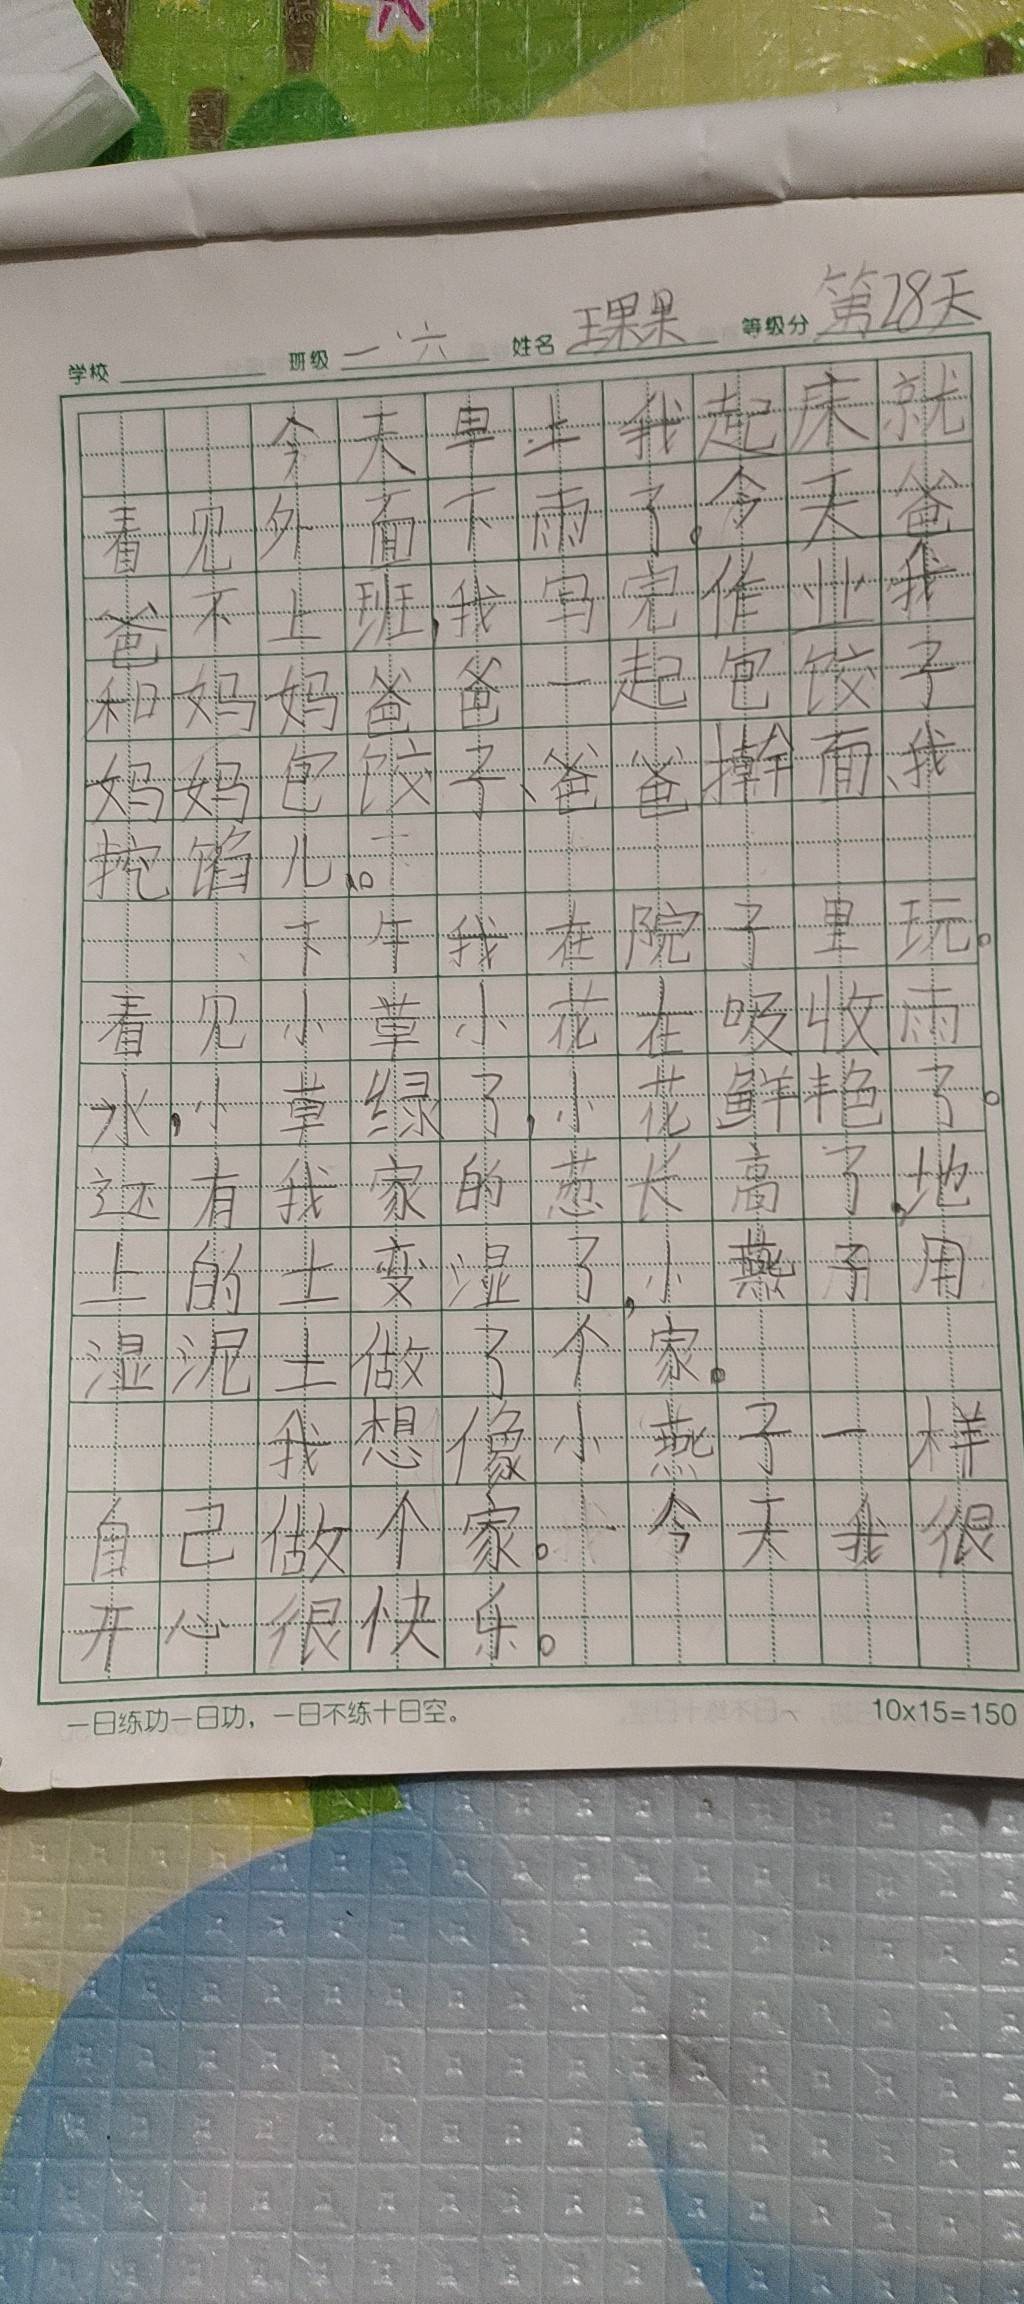 学校 班级 一·六 姓名 王果果 等级分 第28天
今天早上我起床就
看见外面下雨了。今天爸
爸不上班,我写完作业我
和妈妈爸爸一起包饺子
妈妈包饺子、爸爸擀面、我
挖馅儿。
下午我在院子里玩。
看见小草小花在吸收雨
水,小草绿了,小花鲜艳了。
还有我家的葱长高了,地
上的土变湿了,小燕子用
湿泥土做了个家。
我想像小燕子一样
自己做个家。今天我很
开心很快乐。
一日练功一日功，一日不练十日空。 10x15=150